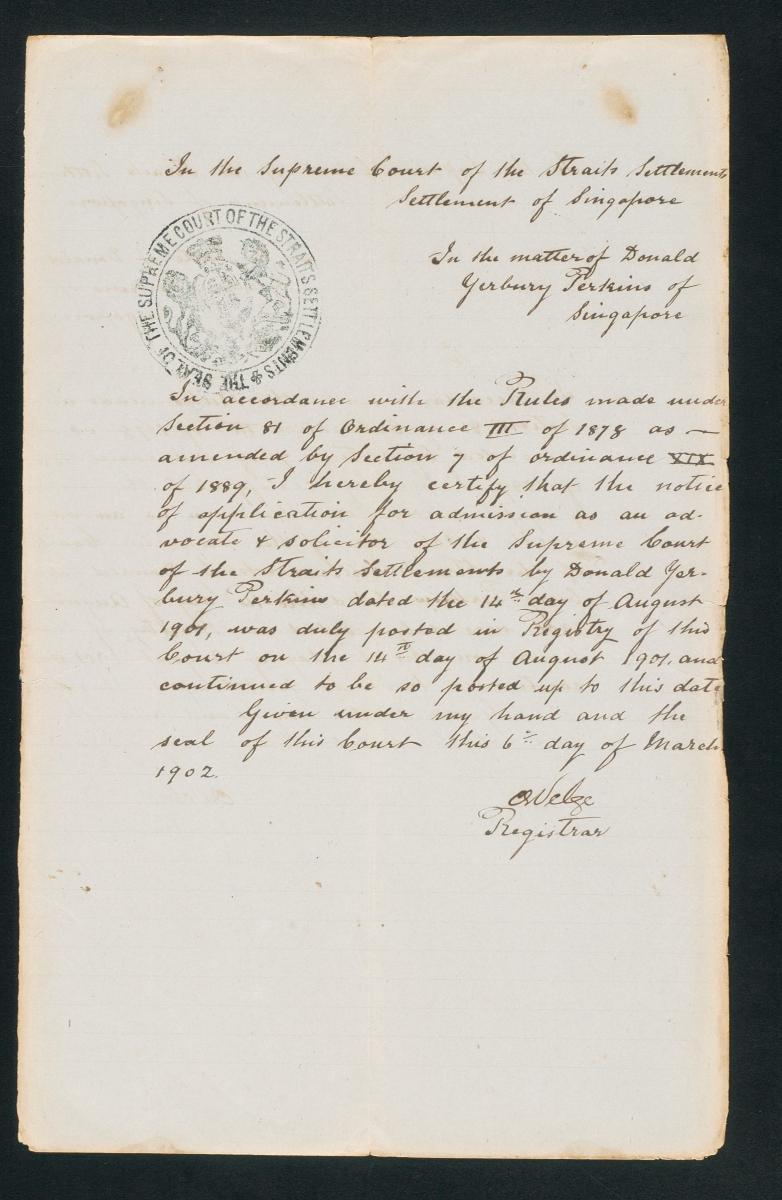 In the Supreme Court of the Straits Settlements
Settlement of Singapore
THE SEAL OF THE SUPREME COURT OF THE STRAITS SETTLEMENTS
In the matter of Donald
Yerbury Perkins of
Singapore
In accordance with the Rules made under
Section 81 of Ordinance III of 1878 as —
amended by Section 7 of ordinance XIX
of 1889, I hereby certify that the notice
of application for admission as an ad-
vocate & solicitor of the Supreme Court
of the Straits Settlements by Donald Yer-
bury Perkins dated the 14th day of August
1901, was duly posted in Registry of this
Court on the 14th day of August 1901. and
continued to be so posted up to this date
Given under my hand and the
seal of this Court this 6th day of March
1902.
Registrar